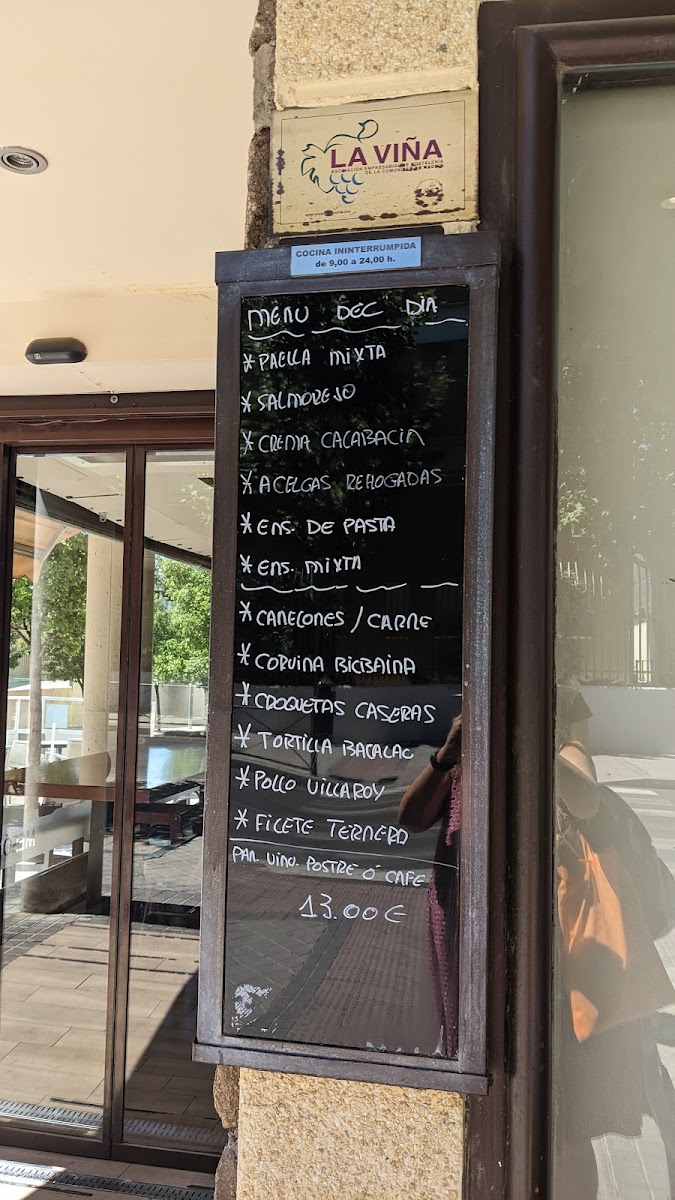 LA VIÑA
ASOCIACIÓN EMPRESARIAL DE HOSTELERÍA
DE LA COMUNIDAD DE MADRID
COCINA ININTERRUMPIDA
de 9,00 a 24,00 h.
MENU DEL DIA
* PAELLA MIXTA
* SALMOREJO
* CREMA CALABACIN
* ACELGAS REHOGADAS
* ENS. DE PASTA
* ENS. MIXTA
* CANELONES / CARNE
* CORVINA BILBAINA
* CROQUETAS CASERAS
* TORTILLA BACALAO
* POLLO VILLAROY
* FILETE TERNERA
PAN. VINO. POSTRE Ó CAFE
13.00€